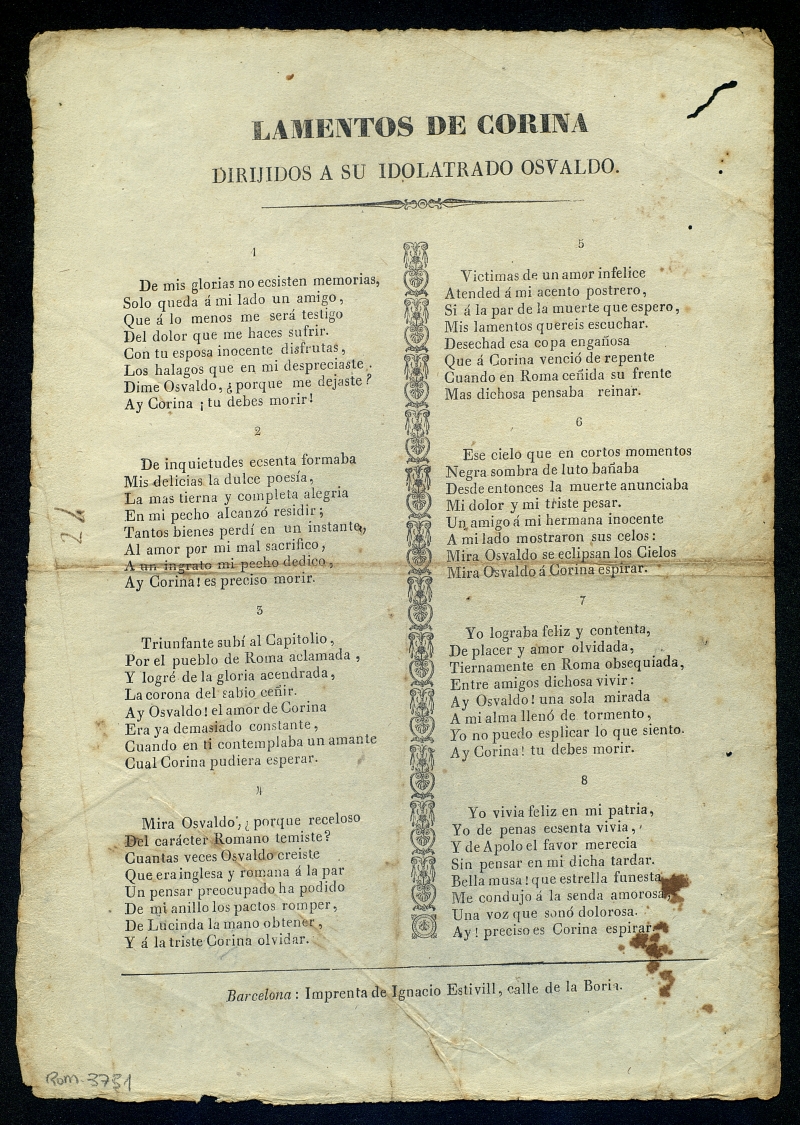 LAMENTOS DE CORINA
DIRIJIDOS A SU IDOLATRADO OSVALDO.
1
De mis glorias no ecsisten memorias,
Solo queda á mi lado un amigo,
Que á lo menos me será testigo
Del dolor que me haces sufrir.
Con tu esposa inocente disfrutas,
Los halagos que en mi despreciaste.
Dime Osvaldo, ¿porque me dejaste?
Ay Corina ¡tu debes morir!
2
De inquietudes ecsenta formaba
Mis delicias la dulce poesía,
La mas tierna y completa alegria
En mi pecho alcanzó residir;
Tantos bienes perdí en un instante,
Al amor por mi mal sacrifico,
A un ingrato mi pecho dedico,
Ay Corina! es preciso morir.
3
Triunfante subí al Capitolio,
Por el pueblo de Roma aclamada,
Y logré de la gloria acendrada,
La corona del sabio ceñir.
Ay Osvaldo! el amor de Corina
Era ya demasiado constante,
Cuando en ti contemplaba un amante
Cual Corina pudiera esperar.
4
Mira Osvaldo, ¿porque receloso
Del carácter Romano temiste?
Cuantas veces Osvaldo creiste
Que era inglesa y romana á la par
Un pensar preocupado ha podido
De mi anillo los pactos romper,
De Lucinda la mano obtener,
Y á la triste Corina olvidar.
5
Victimas de un amor infelice
Atended á mi acento postrero,
Si á la par de la muerte que espero,
Mis lamentos quereis escuchar.
Desechad esa copa engañosa
Que á Corina venció de repente
Cuando en Roma ceñida su frente
Mas dichosa pensaba reinar.
6
Ese cielo que en cortos momentos
Negra sombra de luto bañaba
Desde entonces la muerte anunciaba
Mi dolor y mi triste pesar.
Un amigo á mi hermana inocente
A mi lado mostraron sus celos:
Mira Osvaldo se eclipsan los Cielos
Mira Osvaldo á Corina espirar.
7
Yo lograba feliz y contenta,
De placer y amor olvidada,
Tiernamente en Roma obsequiada,
Entre amigos dichosa vivir:
Ay Osvaldo! una sola mirada
A mi alma llenó de tormento,
Yo no puedo esplicar lo que siento.
Ay Corina! tu debes morir.
8
Yo vivia feliz en mi patria,
Yo de penas ecsenta vivia,
Y de Apolo el favor merecia
Sin pensar en mi dicha tardar.
Bella musa! que estrella funesta
Me condujo á la senda amorosa,
Una voz que sonó dolorosa.
Ay! preciso es Corina espirar.
Barcelona: Imprenta de Ignacio Estivill, calle de la Boria.
24
Rom-3731